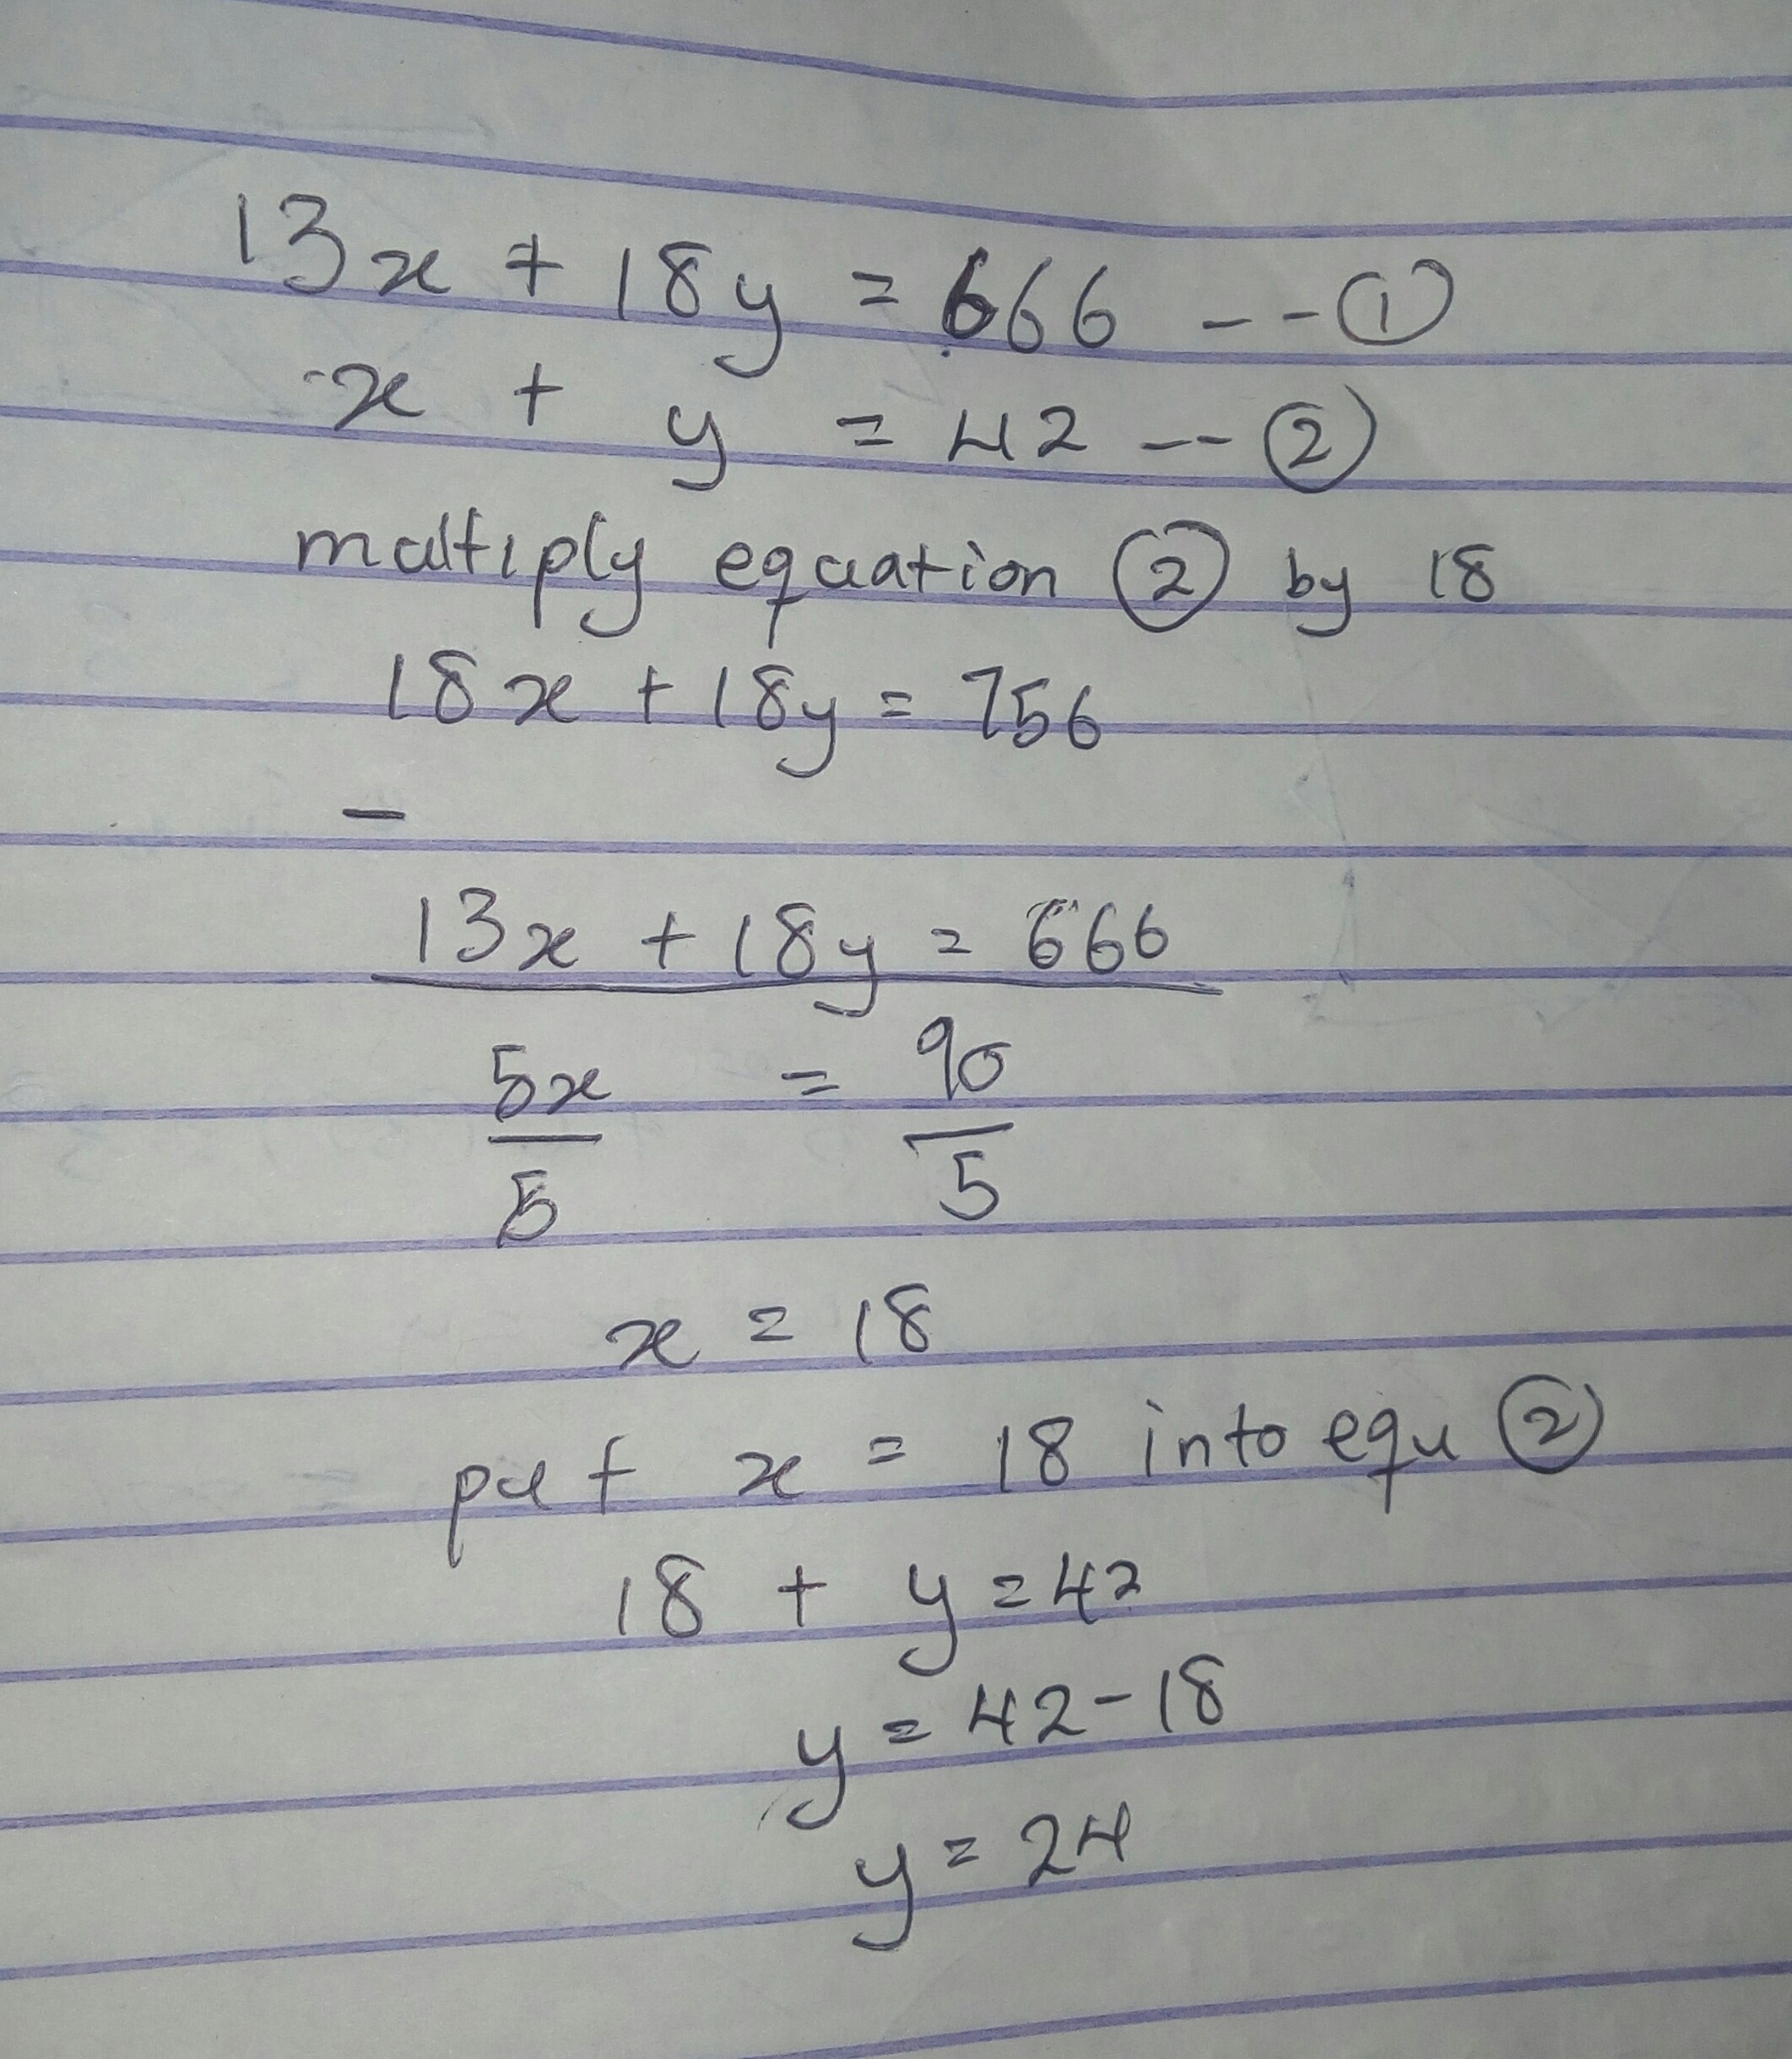 13x + 18y = 666 -- ①
x + y = 42 -- ②
multiply equation ② by 18
18x + 18y = 756
−
13x + 18y = 666
5x = 90
5 5
x = 18
put x = 18 into equ ②
18 + y = 42
y = 42 - 18
y = 24